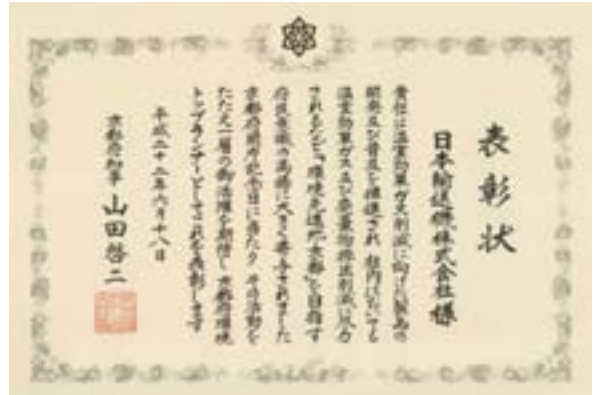 表彰状
日本輸送機株式会社様
貴社は温室効果ガス削減に向けた製品の
開発及び普及を推進され 社内においても
温室効果ガス及び廃棄物排出削減に尽力
されるなど「環境先進地・京都」を目指す
府民意識の高揚に大きく寄与されました
京都府開庁記念日に当たり その活動を
たたえ一層の御活躍を期待し 京都府環境
トップランナーとしてこれを表彰します
平成二十二年六月十八日
京都府知事 山田啓二